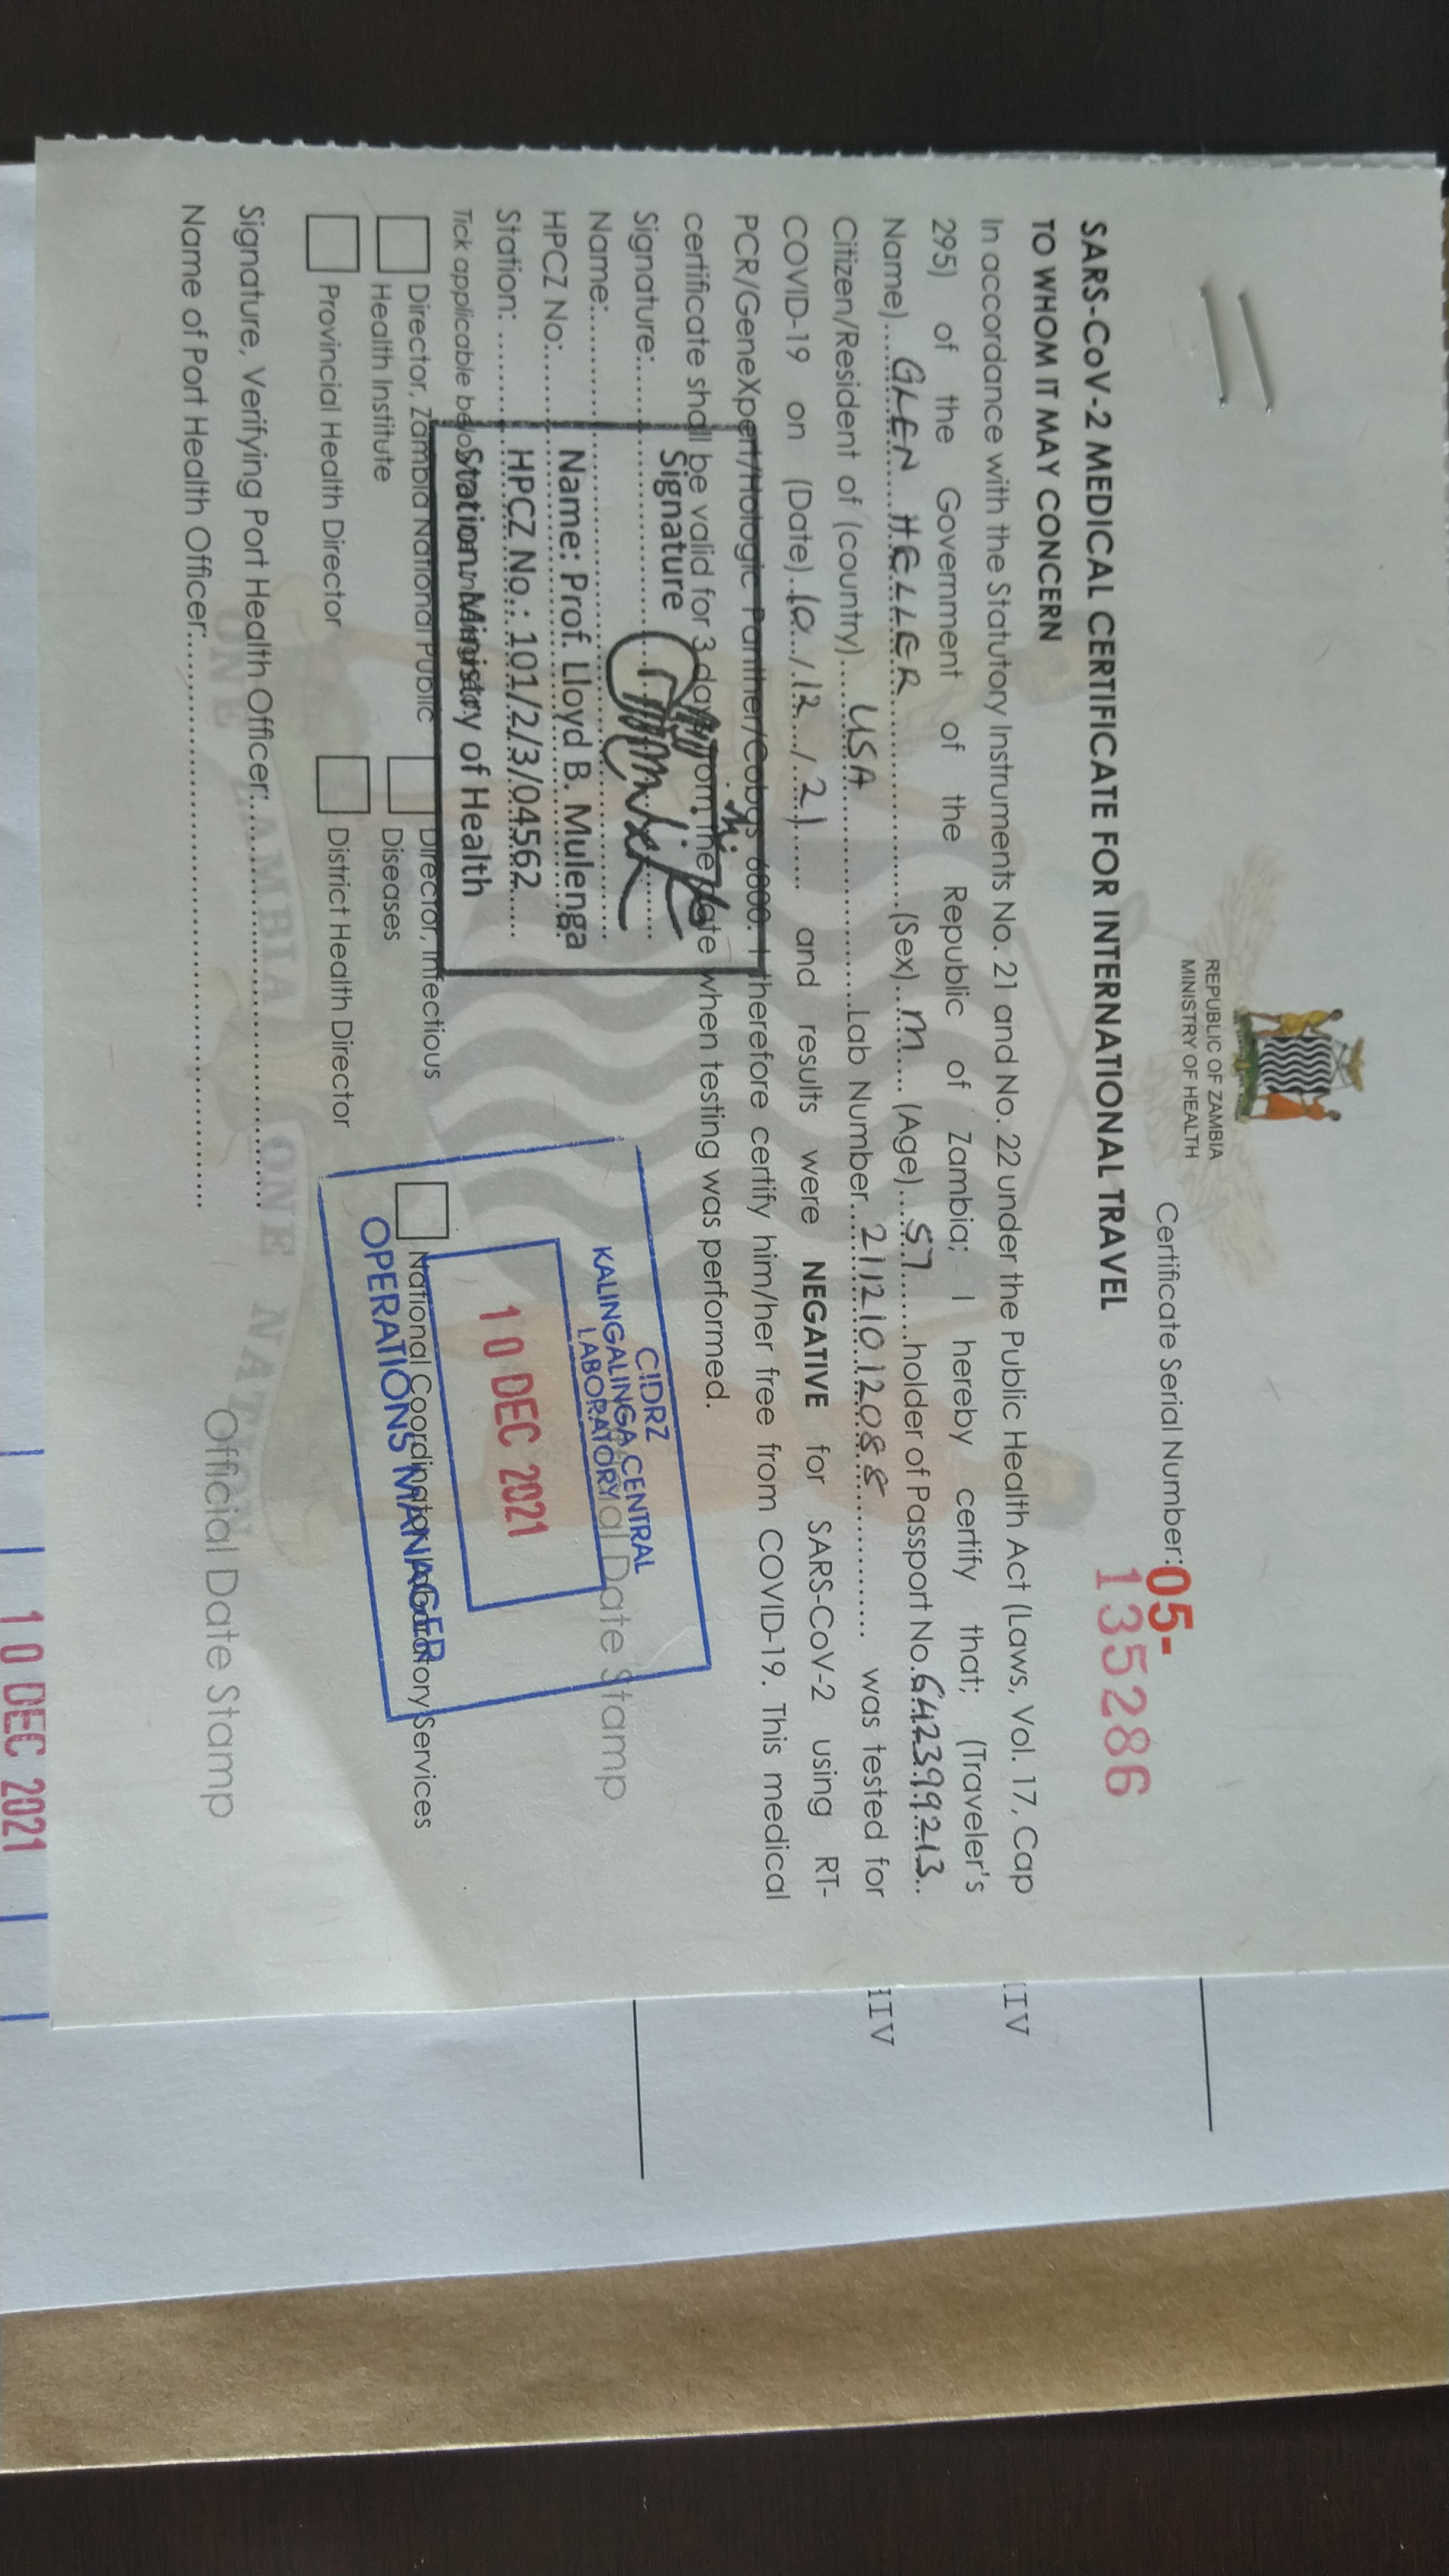 REPUBLIC OF ZAMBIA
MINISTRY OF HEALTH
Certificate Serial Number: 05-
135286
SARS-CoV-2 MEDICAL CERTIFICATE FOR INTERNATIONAL TRAVEL
TO WHOM IT MAY CONCERN
In accordance with the Statutory Instruments No. 21 and No. 22 under the Public Health Act (Laws, Vol. 17, Cap
295) of the Government of the Republic of Zambia; I hereby certify that; (Traveler's
Name) GLEN HELLER (Sex) M (Age) 57 holder of Passport No. 642399213
Citizen/Resident of (country) USA Lab Number 21121012088 was tested for
COVID-19 on (Date) 10/12/21 and results were NEGATIVE for SARS-CoV-2 using RT-
PCR/GeneXpert/Hologic Panther/Cobas 6800. I therefore certify him/her free from COVID-19. This medical
certificate shall be valid for 3 days from the date when testing was performed.
Signature:
Name:
HPCZ No:
Station:
Signature
Name: Prof. Lloyd B. Mulenga
HPCZ No.: 101/2/3/04562
Station: Ministry of Health
CIDRZ
KALINGALINGA CENTRAL
LABORATORY
10 DEC 2021
OPERATIONS MANAGER
Official Date Stamp
Tick applicable
Director, Zambia National Public
Health Institute
Director, Infectious
Diseases
National Coordinator Laboratory Services
Provincial Health Director
District Health Director
Signature, Verifying Port Health Officer:
Name of Port Health Officer:
Official Date Stamp
ONE ZAMBIA ONE NATION
10 DEC 2021